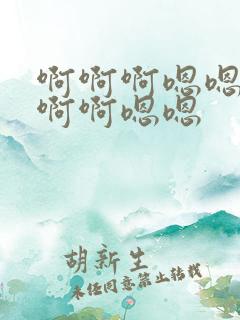 啊啊啊嗯嗯
啊啊嗯嗯
胡新生
未经同意禁止转载